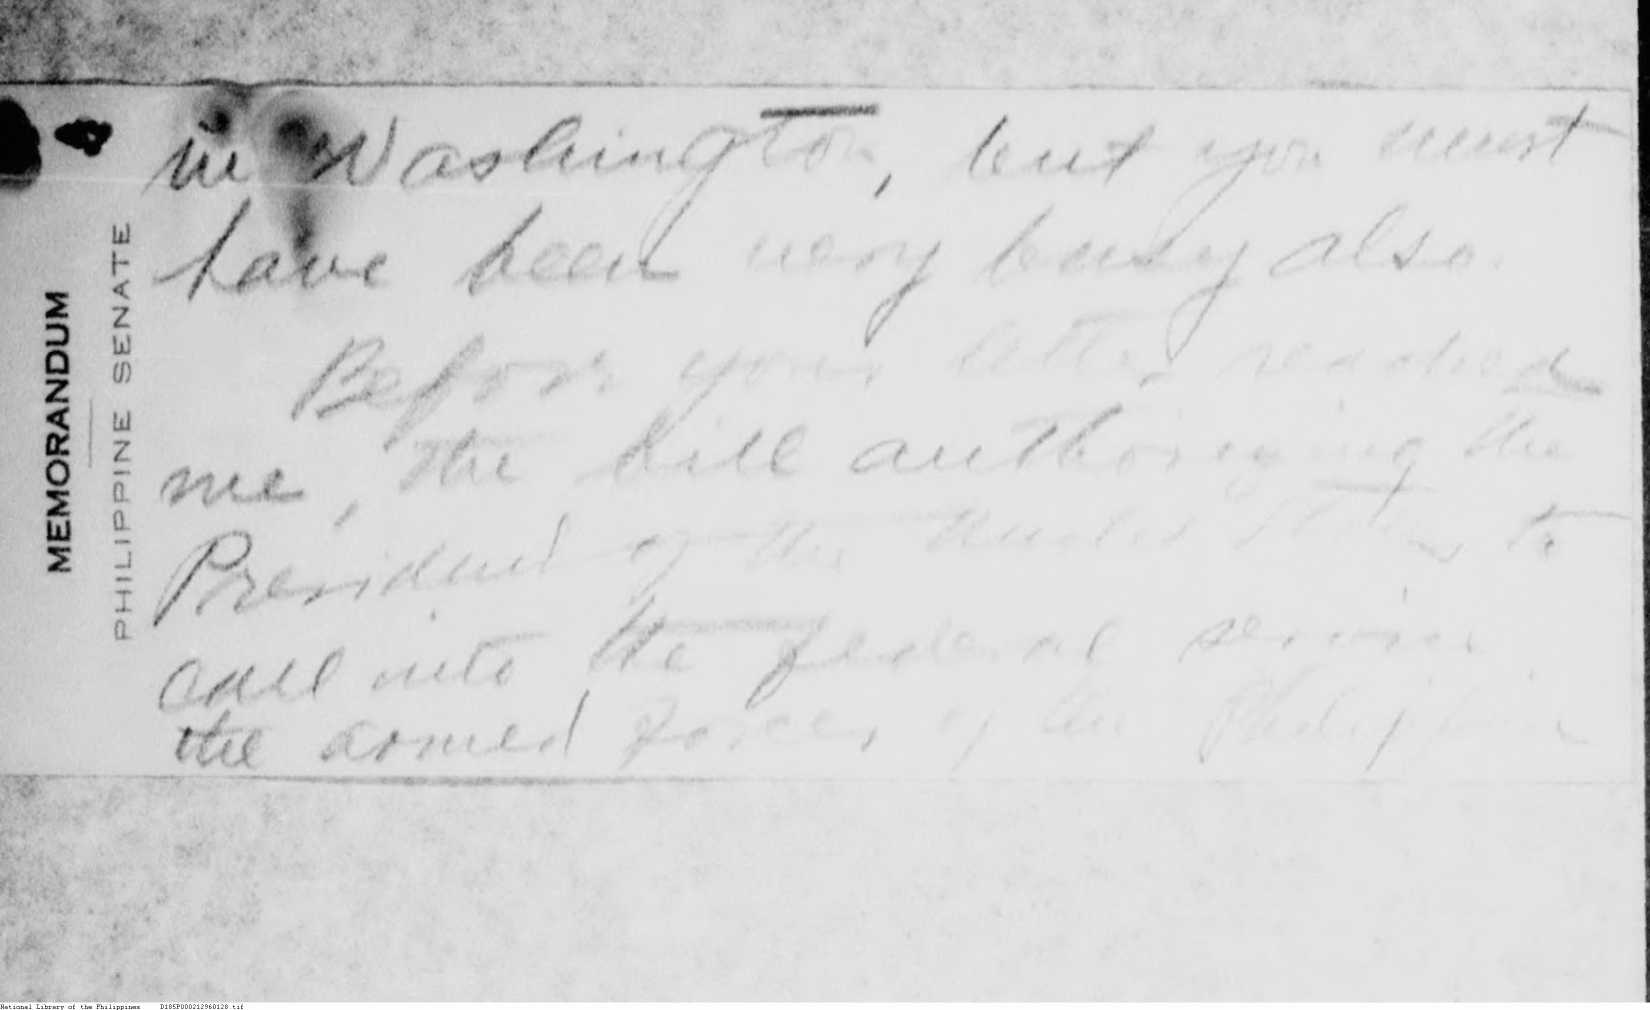 MEMORANDUM
PHILIPPINE SENATE
in Washington, but you must
have been very busy also.
Before your letter reached
me, the bill authorizing the
President of the United States to
call into the federal service
the armed forces of the Philippine
National Library of the Philippines D185P000212960128.tif